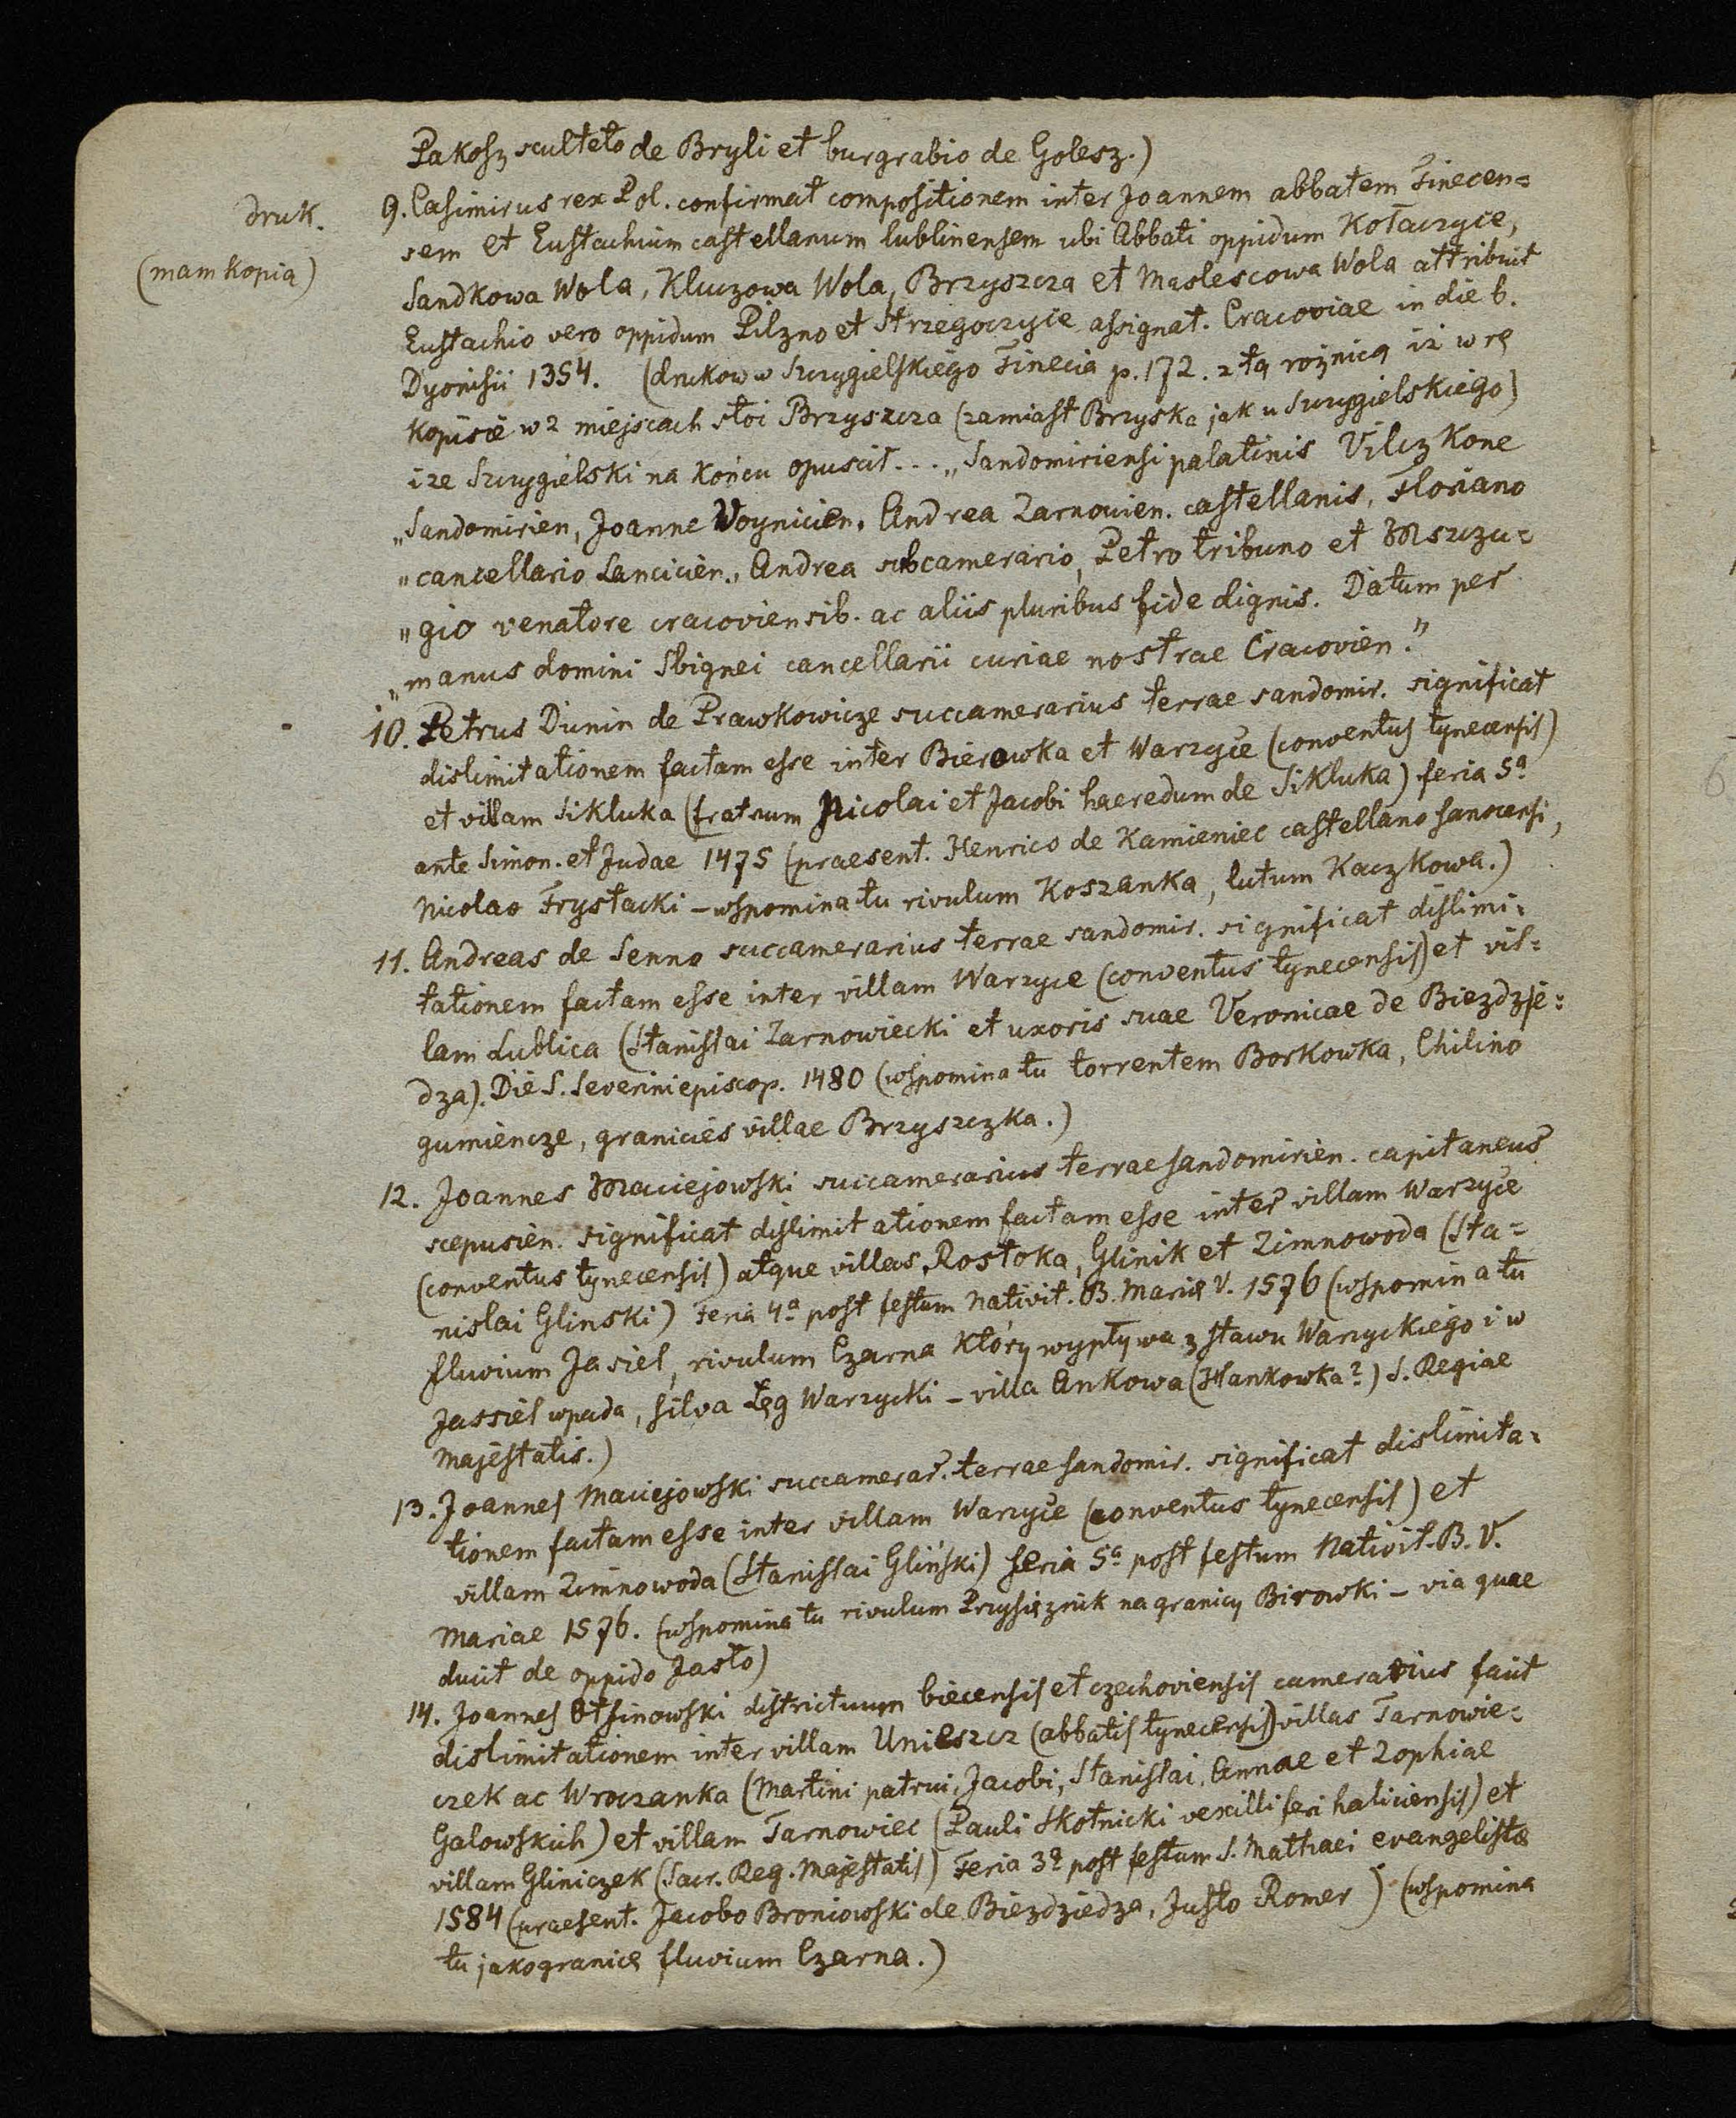 Pakosz sculteto de Bryli et burgrabio de Golesz.)
druk.
(mam kopią)
9. Casimirus rex Pol. confirmat compositionem inter Joannem abbatem Tinecen=
sem et Eustachium castellanum lublinensem ubi Abbati oppidum Kołaczyce,
Sandkowa Wola, Kluczowa Wola, Brzyszcza et Maslescowa Wola attribuit
Eustachio vero oppidum Pilzno et Strzegoczyce assignat. Cracoviae in die b.
Dyonisii 1354. (drukow w Szczygielskiego Tinecia p. 172. z tą rożnicą iż w rę
kopisie w 2 miejscach stoi Brzyszcza (zamiast Brzyska jak u Szczygielskiego)
i że Szczygielski na końcu opuscił... „Sandomiriensi palatinis Vilczkone
„Sandomirien, Joanne Woynicien. Andrea Zarnovien. castellanis, Floriano
„cancellario Lancicien., Andrea subcamerario, Petro tribuno et Mszczu=
„gio venatore cracoviensib. ac aliis pluribus fide dignis. Datum per
„manus domini Sbignei cancellarii curiae nostrae Cracovien."
10. Petrus Dunin de Prawkowicze succamerarius terrae sandomir. significat
dislimitationem factam esse inter Bierowka et Warzyce (conventus tynecensis)
et villam Sikluka (fratrum Nicolai et Jacobi haeredum de Sikluka) feria 5a
ante Simon. et Judae 1475 (praesent. Henrico de Kamieniec castellano sanocensi,
Nicolao Frystacki – wspomina tu rivulum Koszanka, lutum Kaczkowa.)
11. Andreas de Senno succamerarius terrae sandomir. significat dislimi=
tationem factam esse inter villam Warzyce (conventus tynecensis) et vil=
lam Lublica (Stanislai Zarnowiecki et uxoris suae Veronicae de Biezdzie=
dza). Die S. Severini episcop. 1480 (wspomina tu torrentem Borkowka, Chilino
gumiencze, granicies villae Brzyszczka.)
12. Joannes Maciejowski succamerarius terrae sandomirien. capitaneus
scepusien. significat dislimitationem factam esse inter villam Warzyce
(conventus tynecensis) atque villas, Rostoka, Glinik et Zimnowoda (Sta=
nislai Glinski) Feria 4a post festum Nativit. B. Mariæ V. 1576 (wspomina tu
fluvium Jasiel, rivulum Czarna który wypływa z stawu Warzyckiego i w
Jassiel wpada, silva Łęg Warzycki – villa Ankowa (Hankowka?) S. Regiae
Majestatis.)
13. Joannes Maciejowski succamerar. terrae sandomir. significat dislimita=
tionem factam esse inter villam Warzyce (conventus tynecensis) et
villam Zimnowoda (Stanislai Gliński) feria 5a post festum Nativit. B. V.
Mariae 1576. (wspomina tu rivulum Przysiecznik na granicy Birowki – via quae
ducit de oppido Jasło)
14. Joannes Otsinowski districtuum biecensis et czechoviensis camerarius facit
dislimitationem inter villam Unieszcz (abbatis tynecensis) villas Tarnowie=
czek ac Wroczanka (Martini patrui, Jacobi, Stanislai, Annae et Zophiae
Galowskich) et villam Tarnowiec (Pauli Skotnicki vexilliferi haliciensis) et
villam Gliniczek (Sacr. Reg. Majestatis) Feria 3a post festum S. Mathaei evangelistæ
1584 (praesent. Jacobo Broniowski de Biezdziedza, Justo Romer) (wspomina
tu jako granicę fluvium Czarna.)